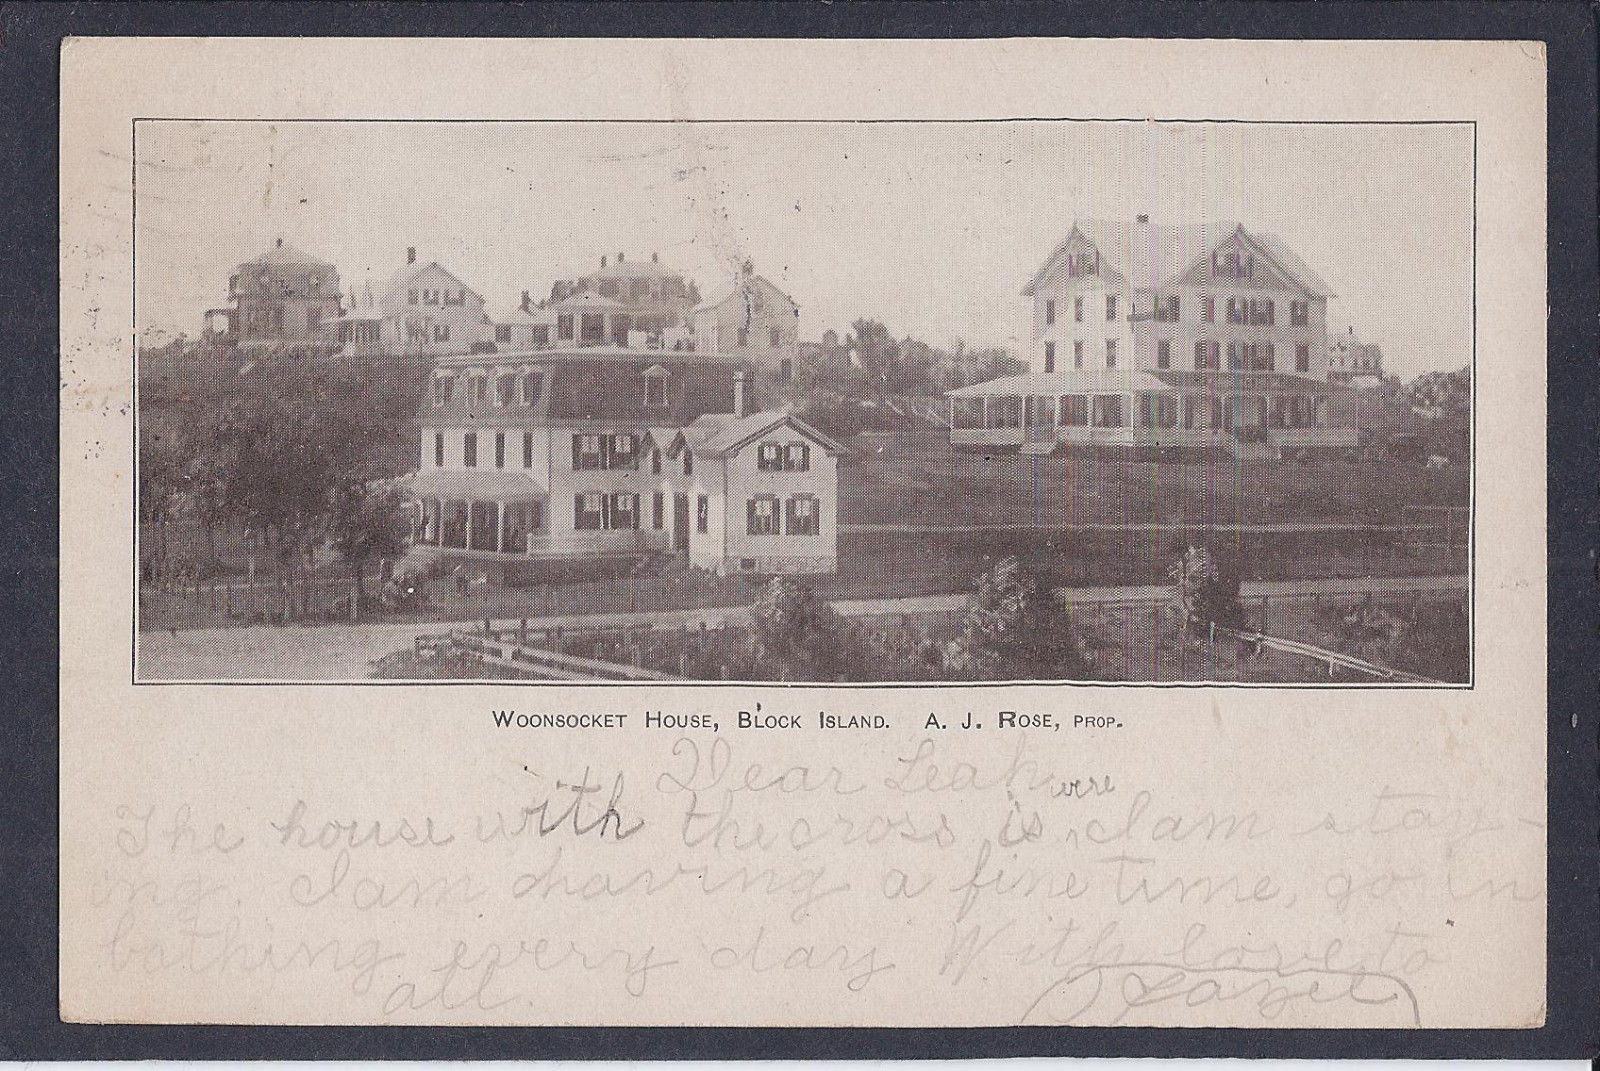 WOONSOCKET HOUSE, BLOCK ISLAND. A. J. ROSE, PROP.
Dear Leah
were
The house with the cross is ‸ I am stay-
ing. I am having a fine time, go in
bathing every day With love to
all.